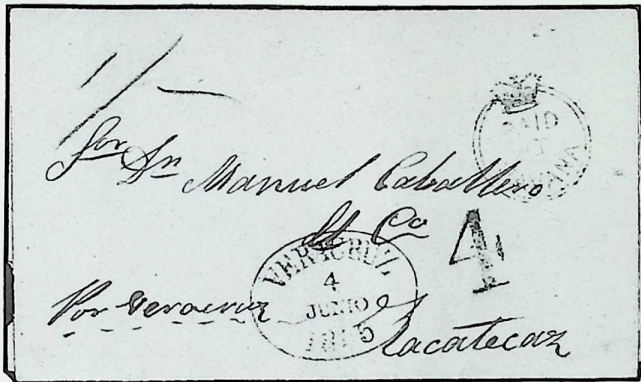 1/-
PAID
Sor Dn Manuel Caballero
& Co
4
VERACRUZ
4
JUNIO
Por Veracruz
Zacatecaz